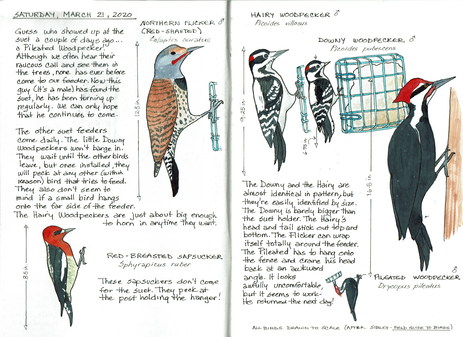 SATURDAY, MARCH 21, 2020
Guess who showed up at the
suet a couple of days ago...
a Pileated Woodpecker.
Although we often hear their
raucous call and see them in
the trees, none has ever before
come to our feeder. Now this
guy (it's a male) has found the
suet, he has been turning up
regularly. We can only hope
that he continues to come.
The other suet feeders
come daily. The little Downy
Woodpeckers won't barge in.
They wait until the other birds
leave, but once installed, they
will peck at any (within
reason) bird that tries to feed.
They also don't seem to
mind if a small bird hangs
onto the far side of the feeder.
The Hairy Woodpeckers are just about big enough
to horn in anytime they want.
NORTHERN FLICKER ♂
(RED-SHAFTED)
Colaptes auratus
RED-BREASTED SAPSUCKER
Sphyrapicus ruber
These sapsuckers don't come
for the suet. They peck at
the post holding the hanger!
HAIRY WOODPECKER ♂
Picoides villosus
DOWNY WOODPECKER ♂
Picoides pubescens
The Downy and the Hairy are
almost identical in pattern, but
they're easily identified by size.
The Downy is barely bigger than
the suet holder. The Hairy's
head and tail stick out top and
bottom. The Flicker can wrap
itself totally around the feeder.
The Pileated has to hang onto
the fence and crane his head
back at an awkward
angle. It looks
awfully uncomfortable,
but it seems to work-
He returned the next day!
PILEATED WOODPECKER ♂
Dryocopus pileatus
ALL BIRDS DRAWN TO SCALE (AFTER SIBLEY - FIELD GUIDE TO BIRDS)